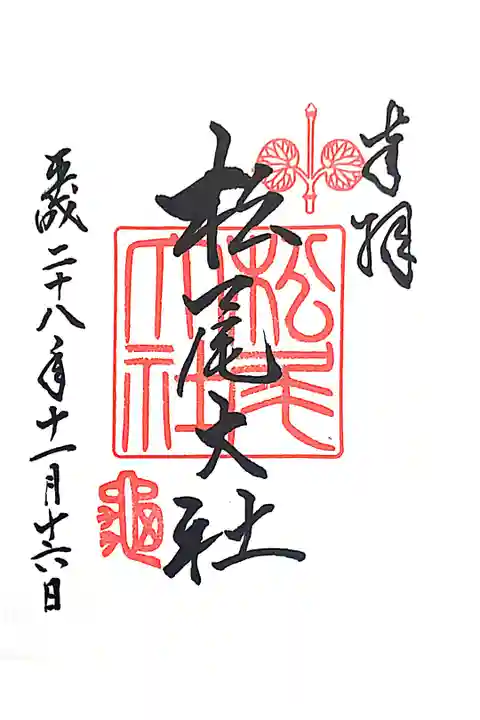 奉拝
松尾大社
松尾大社
亀
平成二十八年十一月十六日